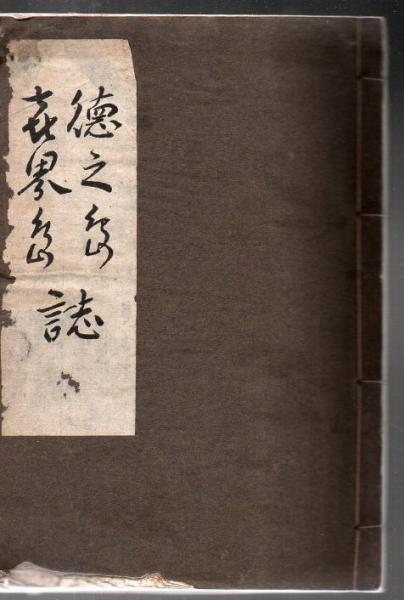 德之島
喜界島
誌